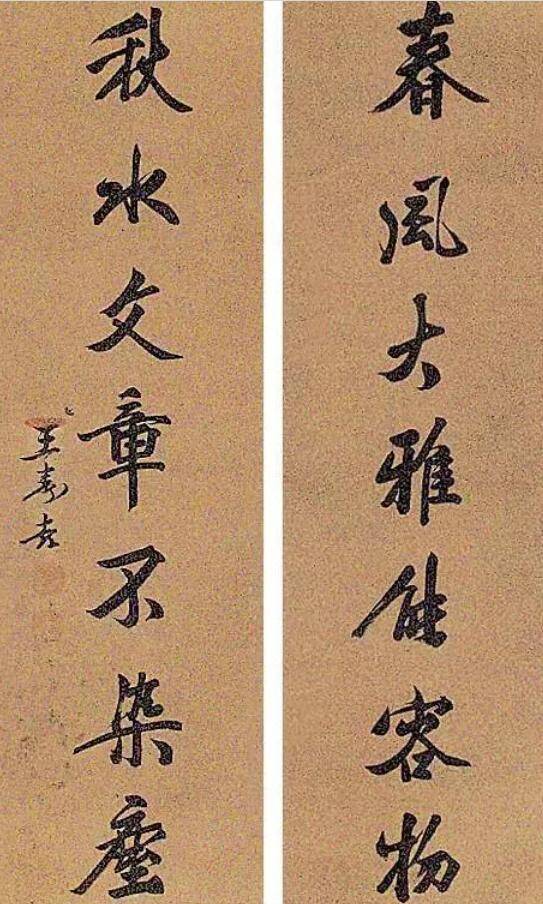 春風大雅能容物
秋水文章不染塵
王壽